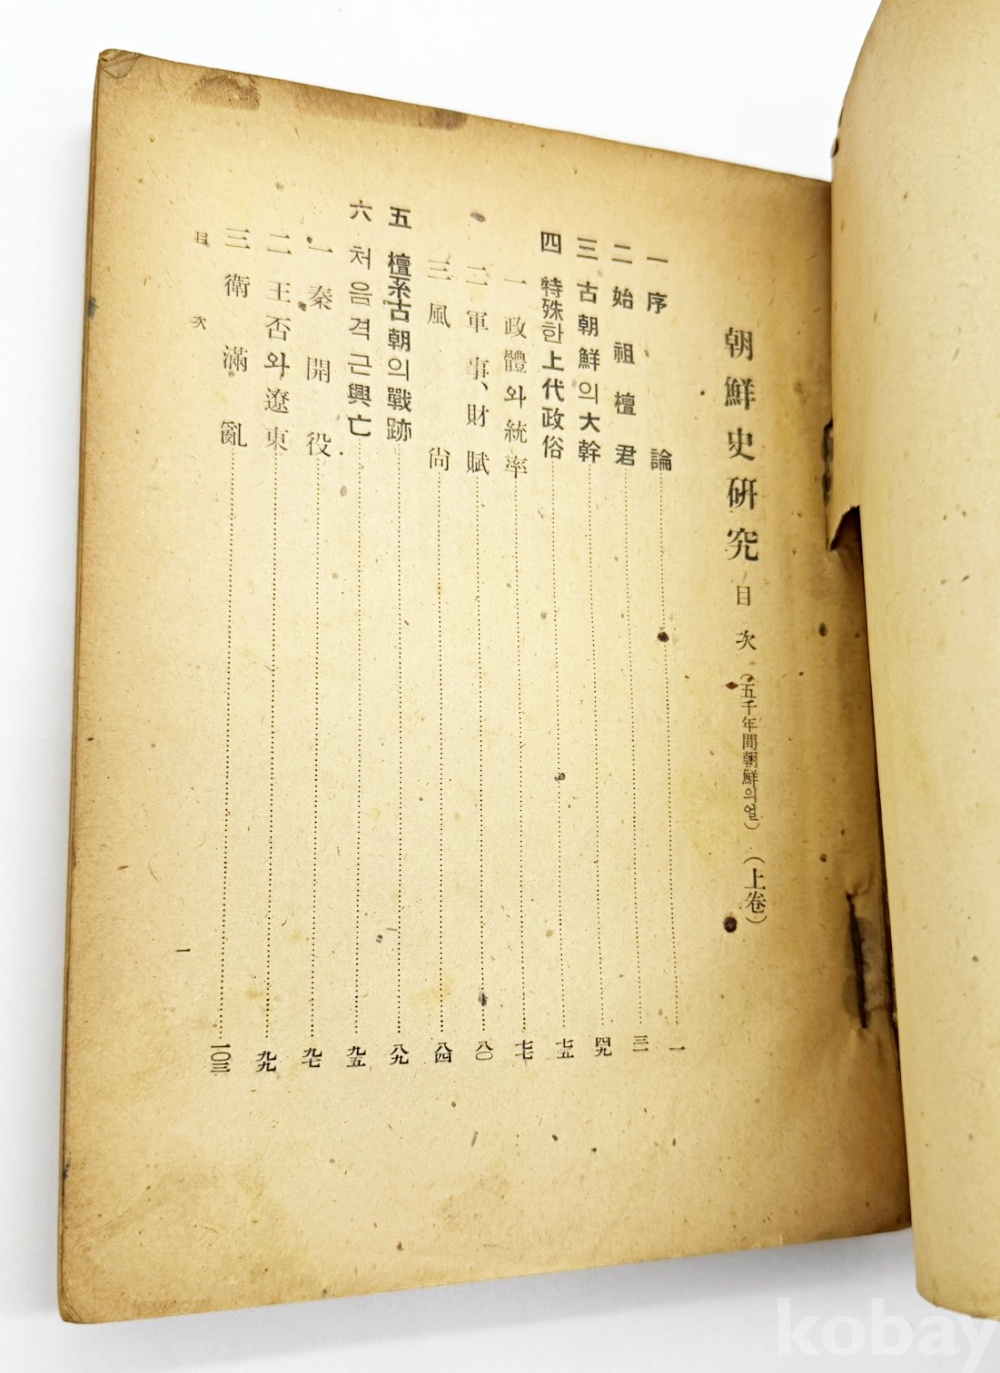 朝鮮史硏究 目次 (五千年間朝鮮의얼) (上卷)
一 序論 一
二 始祖檀君 三一
三 古朝鮮의大幹 四九
四 特殊한上代政俗 七五
一 政體와統率 七七
二 軍事、財賦 八〇
三 風尙 八四
五 檀系古朝의戰跡 八九
六 처음격근興亡 九五
一 秦開役 九七
二 王否와遼東 九九
三 衛滿亂 一〇三
目次 一
kobay